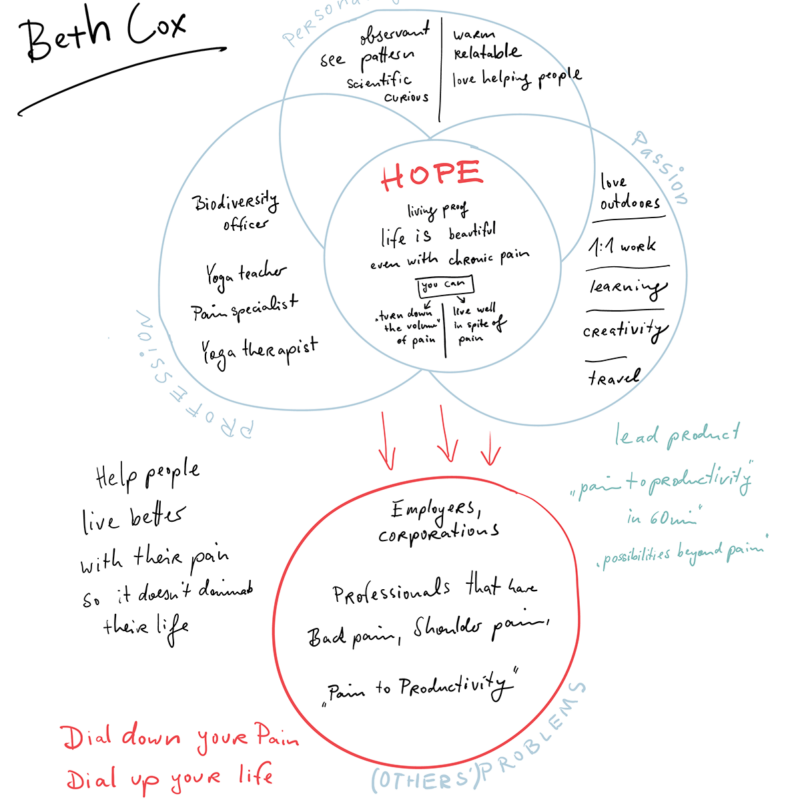 Beth Cox
observant
see pattern
scientific
curious
warm
relatable
love helping people
Passion
love
outdoors
1:1 work
learning
creativity
travel
HOPE
living proof
life is beautiful
even with chronic pain
you can
„turn down
the volume"
of pain
live well
in spite of
pain
Biodiversity
officer
Yoga teacher
Pain specialist
Yoga therapist
PROFESSION
lead product
„pain to productivity"
in 60min"
„possibilities beyond pain"
Help people
live better
with their pain
so it doesn't
their life
Employers,
corporations
Professionals that have
Back pain, Shoulder pain,
„Pain to Productivity"
(OTHERS') PROBLEMS
Dial down your Pain
Dial up your life